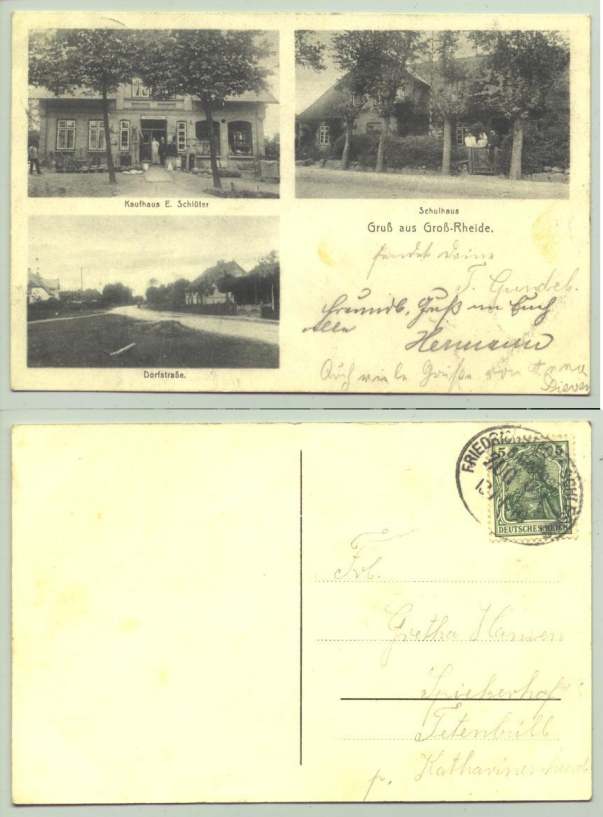 Kaufhaus E. Schlüter
Schulhaus
Gruß aus Groß-Rheide.
Dorfstraße.
sendet Deine
Freundl. Gruß an Euch
alle Hermann
Auch viele Grüße von Anna
FRIEDRICH
ZUG
5 5
DEUTSCHES REICH
Frl.
Gretha Hansen
Spickerhof
Tetenbüll
p. Katharinenheerd